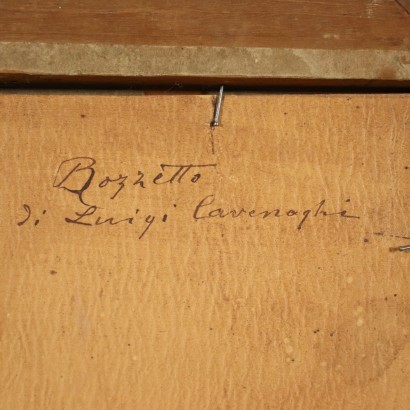 Bozzetto
di Luigi Cavenaghi